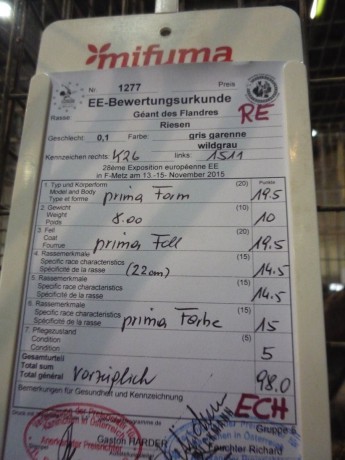 mifuma
Nr. 1277 Preis
EE-Bewertungsurkunde
Rasse: Géant des Flandres RE
Riesen
Geschlecht: 0,1 Farbe: gris garenne
wildgrau
Kennzeichen rechts: K26 links: 1511
28ème Exposition européenne EE
in F-Metz am 13.-15. November 2015
1. Typ und Körperform (20) Punkte
Type
Type et forme prima Form 19.5
2. Gewicht (10)
Weight
Poids 8.00 10
3. Fell (20)
Coat
Fourrue prima Fell 19.5
4. Rassemerkmale (15)
Specific race characteristics
Spécificité de la rasse (22cm) 14.5
5. Rassemerkmale (15)
Specific race characteristics
Spécificité de la rasse 14.5
6. Rassemerkmale (15)
Specific race characteristics
Spécificité de la rasse prima Farbe 15
7. Pflegezustand (5)
Condition
Condition 5
Gesamturteil
Total sum
Total général vorzüglich 98.0
Bemerkungen für Gesundheit und Kennzeichnung
ECH
Gruppe 6
Gaston HARDER Feuchter Richard